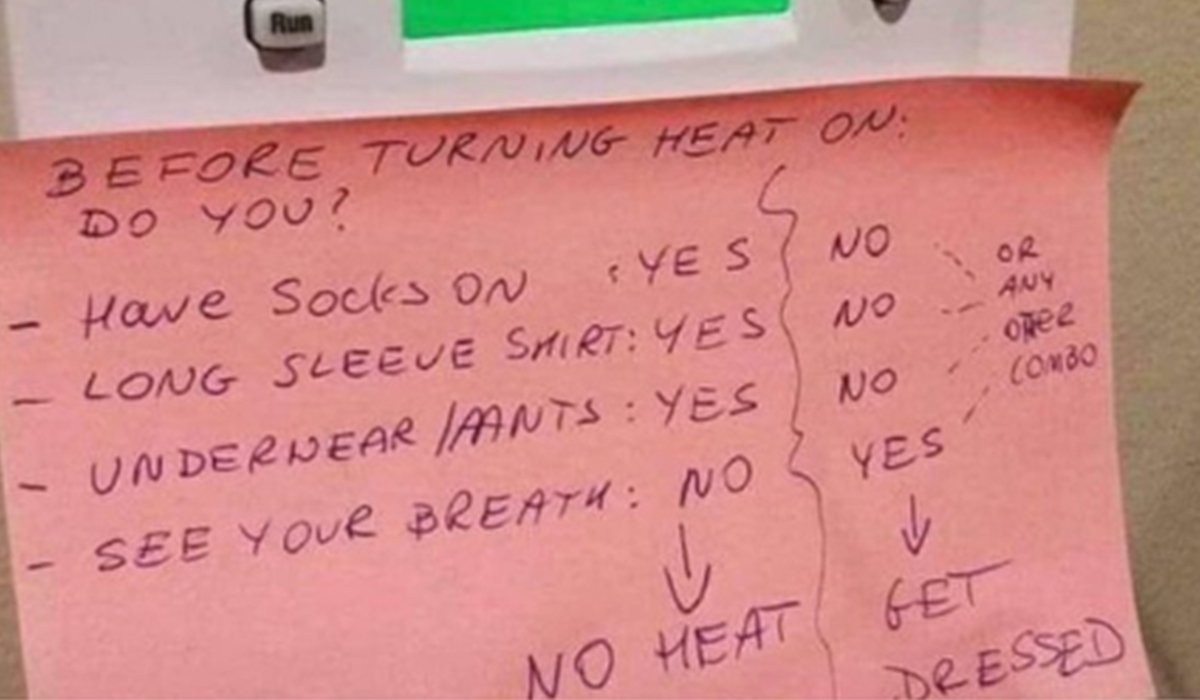 Run
BEFORE TURNING HEAT ON:
DO YOU?
- Have Socks ON : YES NO OR
- LONG SLEEVE SHIRT: YES NO ANY
- UNDERWEAR/PANTS : YES NO OTHER
- SEE YOUR BREATH: NO YES COMBO
NO HEAT GET
DRESSED